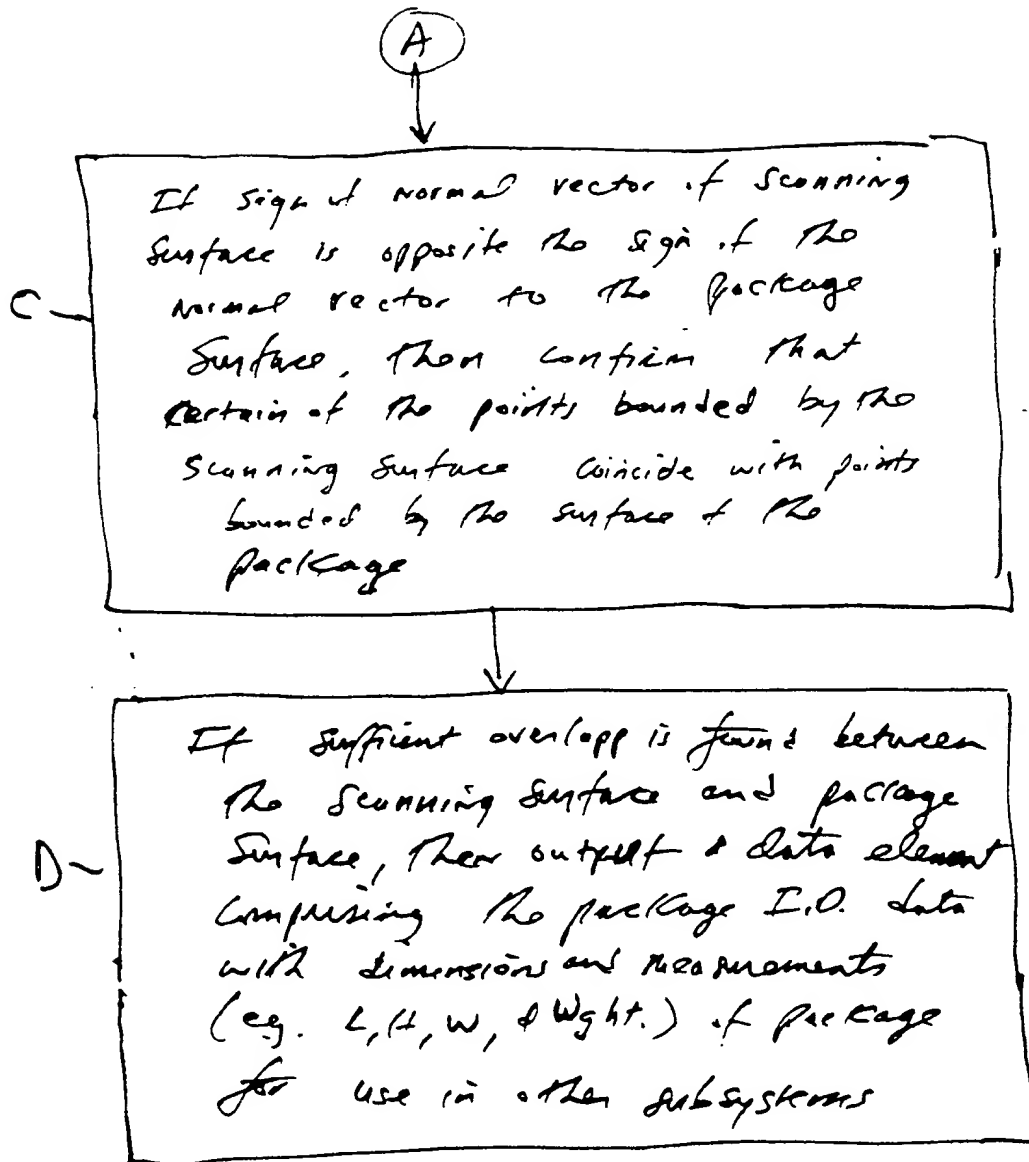 A
If sign of normal vector of scanning
surface is opposite the sign of the
normal vector to the package
C
surface, then confirm that
certain of the points bounded by the
scanning surface coincide with points
bounded by the surface of the
package
If sufficient overlapp is found between
the scanning surface and package
D
surface, then output a data element
comprising the package I.D. data
with dimensions and measurements
(eg. L, H, W, & Wght.) of package
for use in other subsystems